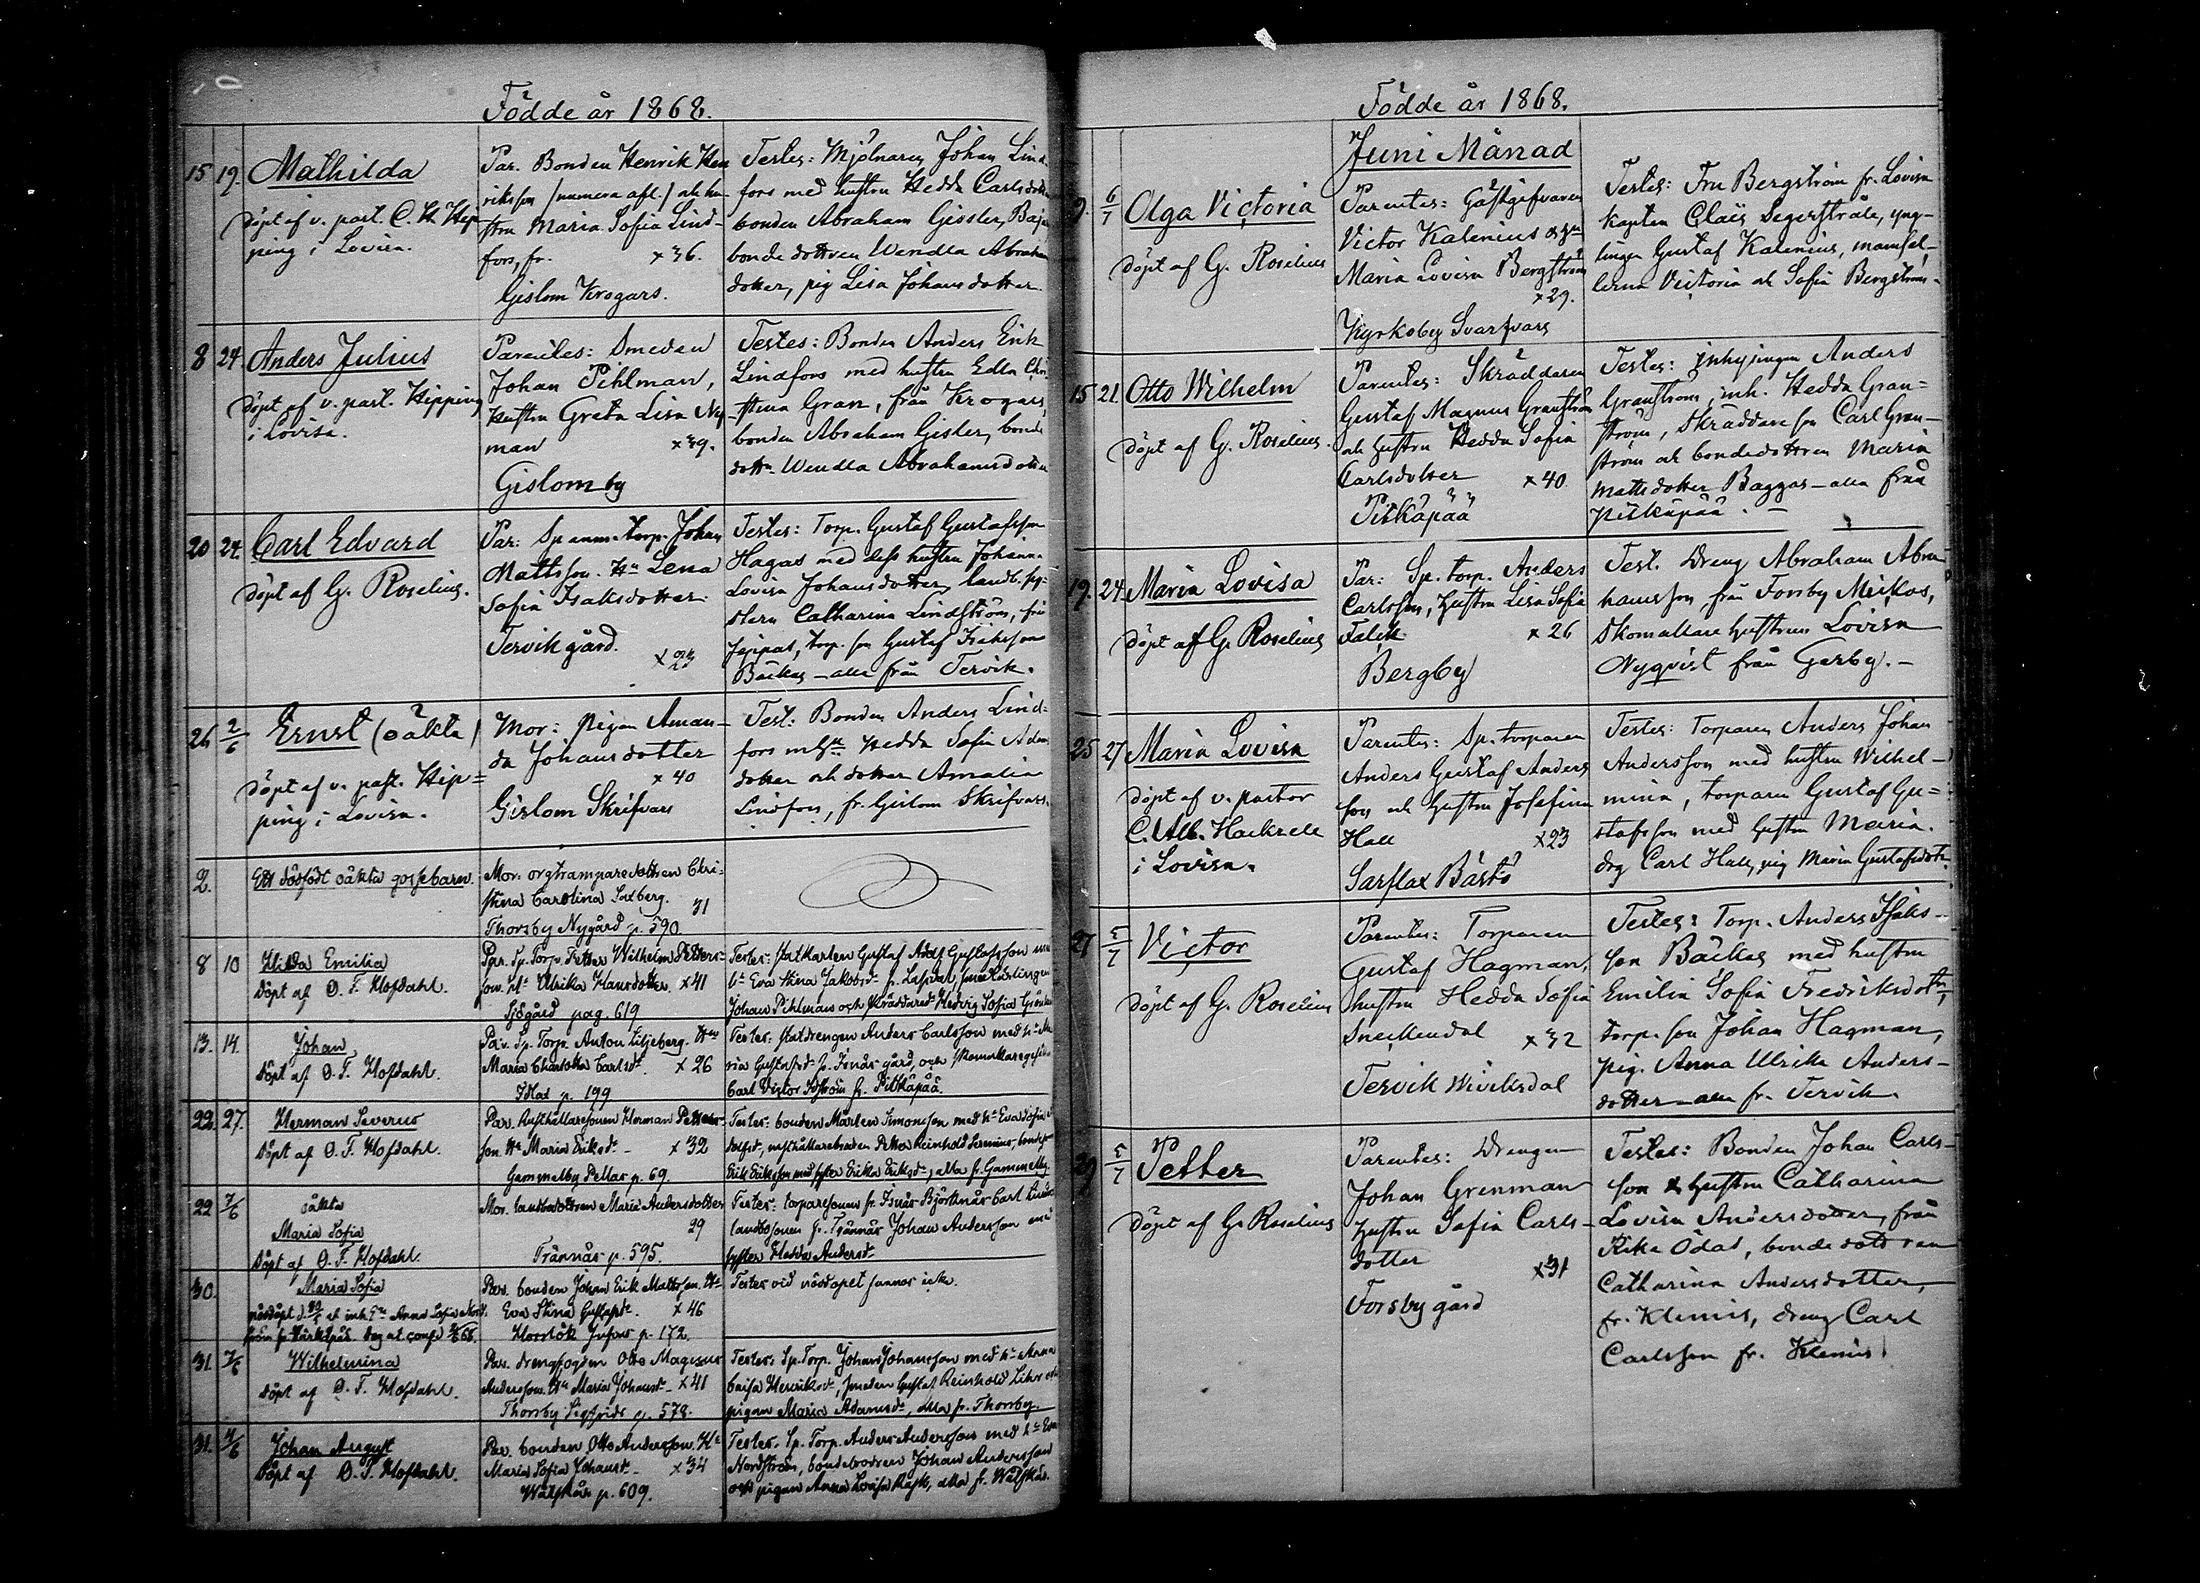 Födde år 1868.
15 19. Mathilda
döpt af v. past. C. H. Hip
ping i Lovisa.
Par. Bonden Henrik Hen
riksson /numera afl./ och hu-
stru Maria Sofia Lind-
fors, fr. x 36.
Gislom Krogars.
Testes: Mjölnaren Johan Lind-
fors med hustru Hedda Carlsdotter
bonden Abraham Gissler,
bonde dottren Wendla Abrahams
dotter, pig Lisa Johansdotter.
8 24. Anders Julius
döpt af v. past. Hipping
i Lovisa.
Parentes: Smeden
Johan Pihlman,
hustru Greta Lisa Ny
man x 39.
Gislom by
Testes: Bonden Anders Erik
Lindfors med hustru Edla Chri
stina Gran, från Krogars,
bonden Abraham Gisler, bonde
dottr. Wendla Abrahamsdotter
20 24. Carl Edvard
döpt af G. Roselius.
Par: Sp anm. torp. Johan
Mattsson. Hu Lena
Sofia Isaksdotter.
Tervik gård.
x 23
Testes: Torp. Gustaf Gustafsson
Hagas med dess hustru Johanna
Lovisa Johansdotter,
Catharina Lindström,
torp. son Gustaf
Bäckas – alla från Tervik.
26 2/6 Ernst (oäkta)
döpt af v. past. Hip=
ping i Lovisa.
Mor: Pigan Aman-
da Johansdotter
x 40
Gislom Skrifvars
Test: Bonden Anders Lind=
fors m hu Hedda Sofia Adams
dotter och dotter Amalia
Lindfors, fr. Gislom Skrifvars.
2. Ett dödfödt oäkta gossebarn.
Mor: orgtramparedottren Chri-
stina Carolina Saxberg.
31
Thorsby Nygård p. 590
8 10 Hilda Emilia
Döpt af O. F. Hofdahl.
Par. Sp. Torp. Petter Wilhelm Petters-
son. Hu Ulrika Hansdotter. x 41
Sjögård pag. 619
Testes: Statkarlen Gustaf Adolf Gustafsson med
hu Eva Stina Jakobsdr
Johan Pihlman och skräddared. Hedvig Sofia
13. 14. Johan
Döpt af O. F. Hofdahl.
Par. Sp. Torp. Anton Liljeberg. Hu
Maria Charlotta Carlsdr. x 26
p. 199
Testes: statdrengen Anders Carlsson med hu Ma
ria Gustafsdr fr. Isnäs gård, och skomakaregesällen
Carl Victor fr. Pitkäpää.
22. 27. Herman Severus
Döpt af O. F. Hofdahl.
Par. Herman Petters-
son. Hu Maria Eriksdr. x 32
Gammelby Pellas p. 69.
Testes: bonden Mårten Simonsson med hu Eva Sofia
Petter Reinhold
Erik Eriksson med syster Erika Eriksdr, alla fr. Gammelby.
22 7/6 oäkta
Maria Sofia
Döpt af O. F. Hofdahl.
Mor. landbodottren Maria Andersdotter
29
Trännäs p. 595.
Testes: torparesonen fr. Isnäs Björknäs Carl
landbosonen fr. Trännäs Johan Andersson med
syster Hedda Andersdr
30. Maria Sofia
nöddöpt d. 30/5 af inh. hu Anna Sofia
Par. bonden Johan Erik Mattsson. Hu
Eva Stina Gustafsdr. x 46
p. 172.
Testes vid nöddopet funnos icke.
31. 7/6 Wilhelmina
Döpt af O. F. Hofdahl.
Par. drengfogden Otto Magnus
Andersson. Hu Maria Johansdr. x 41
Thorsby Sigfrids p. 578.
Testes: Sp. Torp. Johan Johansson med hu Anna
Caisa Henriksdr, smeden Gustaf Reinhold och
pigan Maria Adamsdr, alla fr. Thorsby.
31. 4/6 Johan August
Döpt af O. F. Hofdahl.
Par. bonden Otto Andersson. Hu
Maria Sofia Johansdr. x 34
p. 609.
Testes: Sp. Torp. Anders Andersson med hu Eva
Nordström, bondebrodren Johan Andersson
och pigan Anna Lovisa Rask, alla fr.
Födde år 1868.
Juni Månad
9. 6/7 Olga Victoria
döpt af G. Roselius
Parentes: Gästgifvaren
Victor Kalenius o hu
Maria Lovisa Bergström
x 29.
Kyrkoby Svartvars
Testes: Fru Bergström fr. Lovisa
Kapten Claës Segerstråle, yng-
lingen Gustaf Kalenius, mamsel-
lerna Victoria och Sofia Bergström.
15 21. Otto Wilhelm
döpt af G. Roselius.
Parentes: Skräddaren
Gustaf Magnus Granström
och hustru Hedda Sofia
Carlsdotter x 40.
Pitkäpää
Testes: inhysingen Anders
Granström, inh. Hedda Gran=
ström, Skräddare son Carl Gran-
ström och bondedottren Maria
Mattsdotter Baggas – alla från
Pitkäpää. –
19. 24. Maria Lovisa
döpt af G. Roselius
Par: Sp. torp. Anders
Carlsson, hustru Lisa Sofia
Falck x 26
Bergby
Test. Dreng Abraham Abra-
hamsson från Forsby Mickos,
Skomakare hustrun Lovisa
Nyqvist från Gerby. –
25 27 Maria Lovisa
döpt af v. pastor
C. Alb. Hackzell
i Lovisa.
Parentes: Sp. torparen
Anders Gustaf Anders
son och hustru Josefina
Hall x 23
Sarflax Båstö
Testes: Torparen Anders Johan
Andersson med hustru Wilhel-
mina, torparen Gustaf Gu=
stafsson med hustru Maria.
drg Carl Hall, pig Maria Gustafsdotter
27 5/7 Victor
döpt af G. Roselius
Parentes: Torparen
Gustaf Hagman,
hustru Hedda Sofia
Snellendal x 32
Tervik Wiriksdal
Testes: Torp. Anders Isaks-
son Bäckas med hustru
Emilia Sofia Fredriksdotter,
torp. son Johan Hagman,
pig. Anna Ulrika Anders-
dotter – alla fr. Tervik.
29 5/7 Petter
döpt af G. Roselius
Parentes: Drengen
Johan Grenman
hustru Sofia Carls-
dotter
x 31
Forsby gård
Testes: Bonden Johan Carls-
son & hustru Catharina
Lovisa Andersdotter, från
Rike Ödas, bonde dottren
Catharina Andersdotter,
fr. Klemis, dreng Carl
Carlsson fr. Klemis.